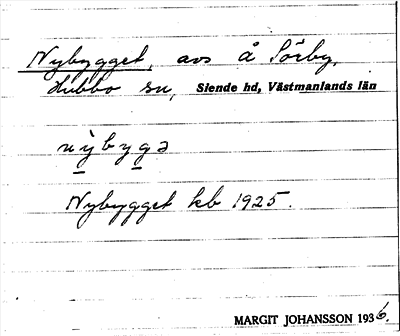 Nybygget, avs å Sörby,
Hubbo sn, Siende hd, Västmanlands län
nỳbygə
Nybygget kb 1925.
MARGIT JOHANSSON 1936.